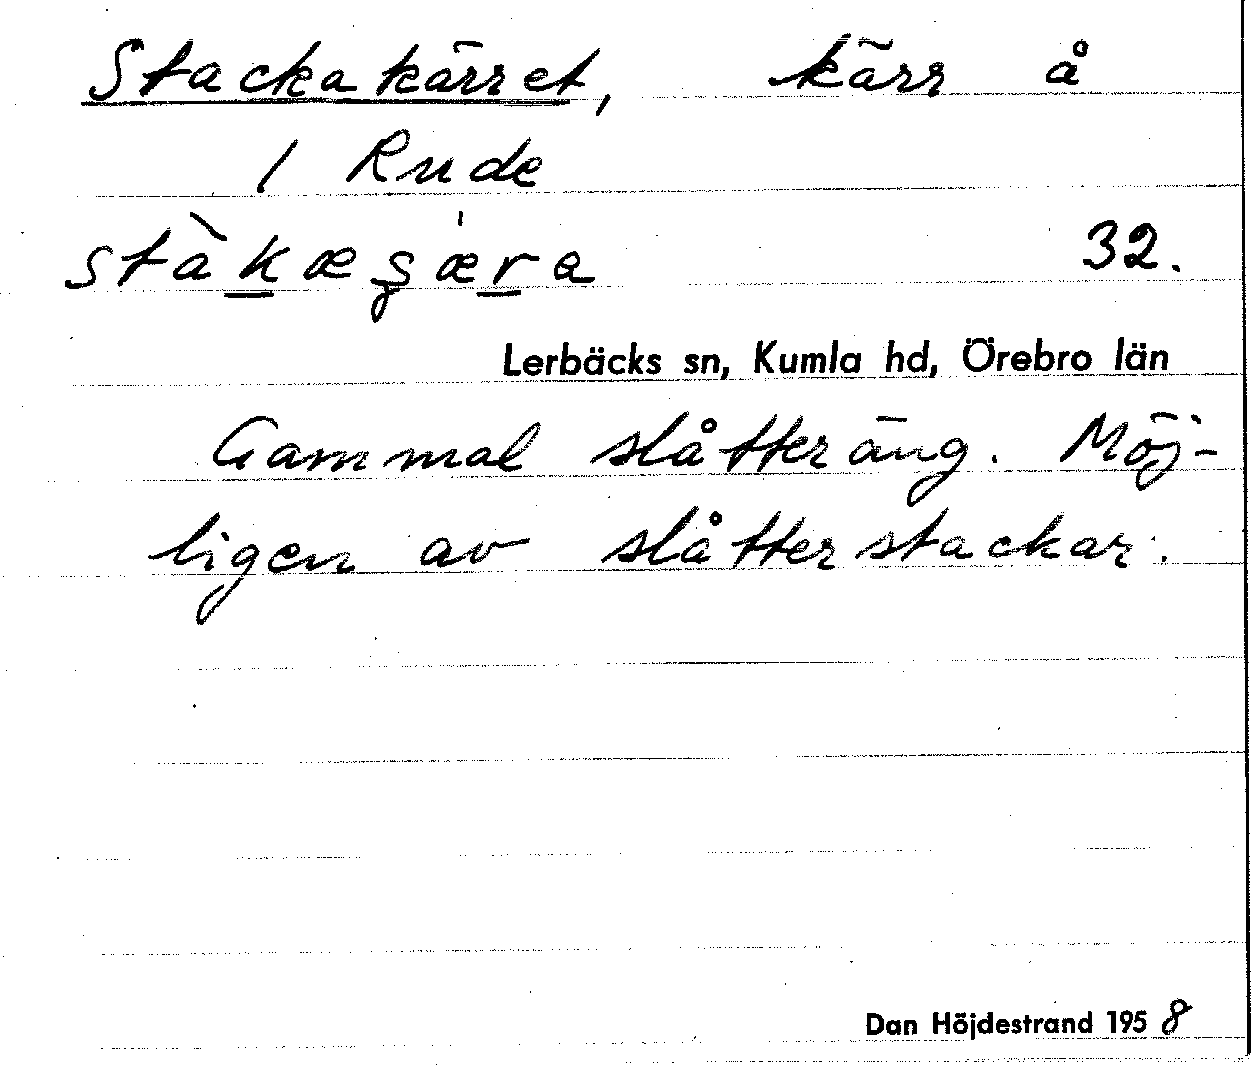 Stackakärret, kärr å
1 Rude
stàkæʂæ̀ra 32.
Lerbäcks sn, Kumla hd, Örebro län
Gammal slåtteräng. Möj-
ligen av slåtterstackar.
Dan Höjdestrand 1958